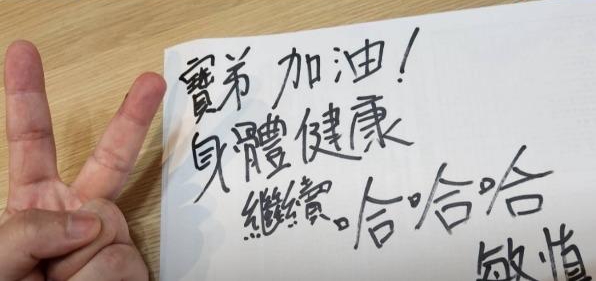 寶弟 加油！
身體健康
繼續.哈.哈.哈
敏慎